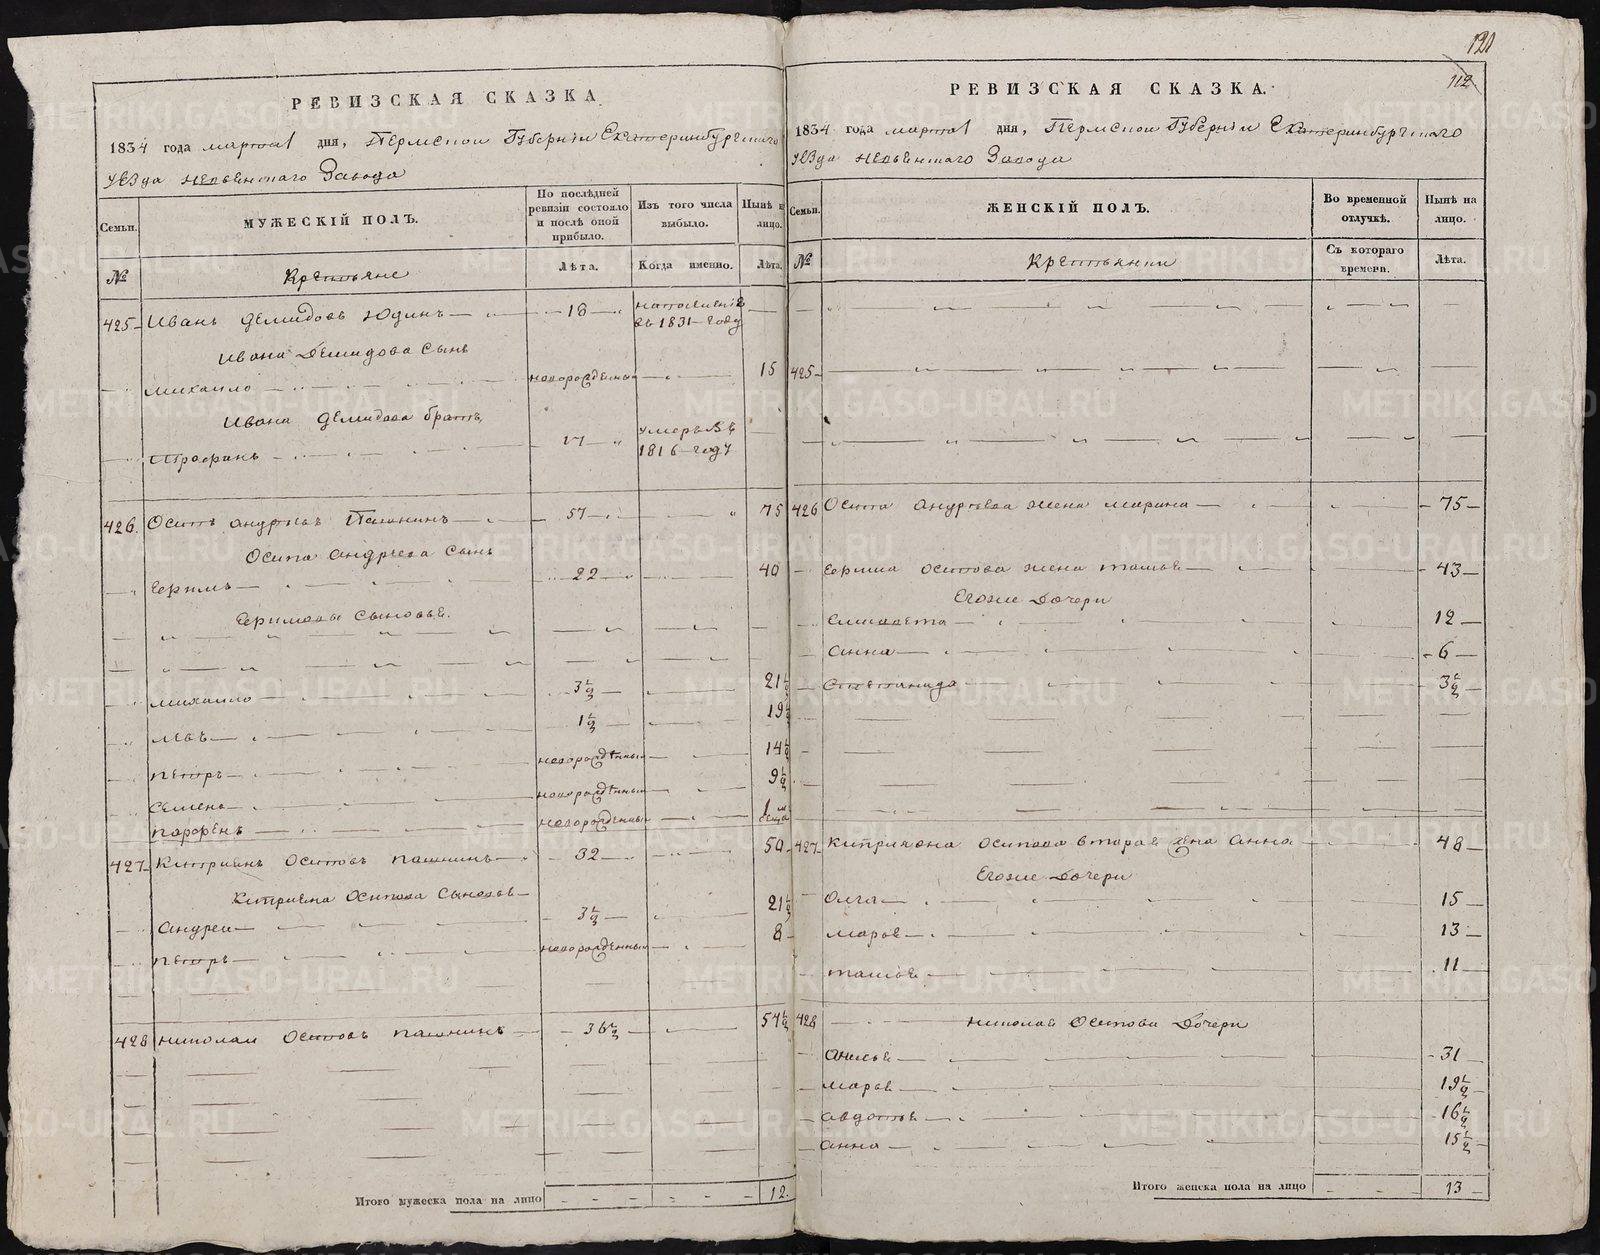 РЕВИЗСКАЯ СКАЗКА.
1834 года марта 1 дня, Пермской Губерніи Екатеринбургскаго
уезда невьенскаго Завода
Семьи.
МУЖЕСКІЙ ПОЛЪ.
По послѣдней ревизіи состояло и послѣ оной прибыло.
Изъ того числа выбыло.
Нынѣ на лицо.
№
Крестьяне
Лѣта.
Когда именно.
Лѣта.
425 Иванъ демидовъ Юдинъ 18
въ 1831 году
Ивана Демидова Сынъ
михаило новорожденный 15
Ивана демидова братъ
Трофимъ 17 умеръ въ 1816 году
426 Осипъ андреевъ Пашнинъ 57 75
Осипа андреева Сынъ
Ефимъ 22 40
Ефимовы Сыновье.
михаило 3 1/2 21 1/2
левъ 1 1/2 19 1/2
петръ новорожденный 14 1/2
Семенъ новорожденный 9 1/2
парфенъ новорожденный 1 месяца
427 Киприянъ Осиповъ пашнинъ 32 50
Киприяна Осипова Сыновья
андреи 3 1/2 21 1/2
петръ новорожденный 8
428 николаи Осиповъ пашнинъ 36 1/2 54 1/2
Итого мужеска пола на лицо 12.
121
112
РЕВИЗСКАЯ СКАЗКА.
1834 года марта 1 дня, Пермской Губерніи Екатеринбургскаго
уезда невьенскаго Завода
Семьи.
ЖЕНСКІЙ ПОЛЪ.
Во временной отлучкѣ.
Нынѣ на лицо.
№
Крестьянки
Съ котораго времени.
Лѣта.
425
426 Осипа андреева жена марина 75
Ефима осипова жена татья 43
Егоже Дочери
Елисавета 12
анна 6
Степанида 3 1/2
427 киприяна осипова вторая жена анна 48
Егоже Дочери
Олга 15
маря 13
татья 11
428 николая Осипова Дочери
анисья 31
маря 19 1/2
авдотья 16 1/2
анна 15 1/2
Итого женска пола на лицо 13
METRIKI.GASO-URAL.RU